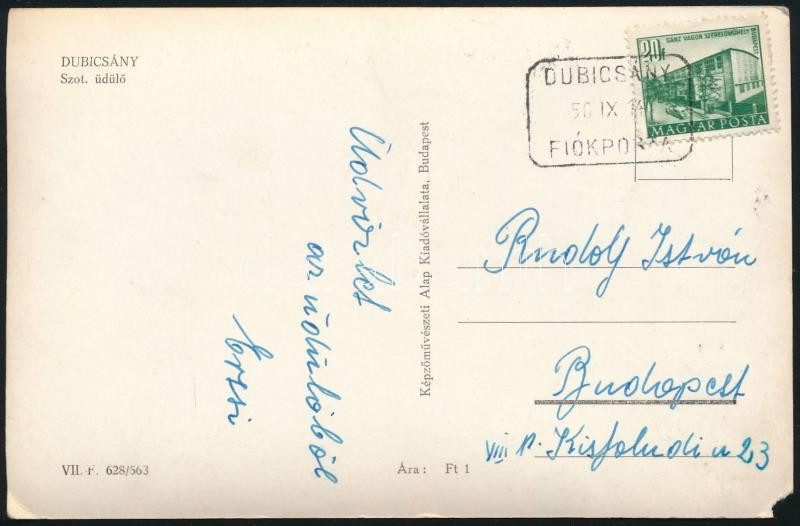 DUBICSÁNY
Szot. üdülő
Üdvözlet
az üdülőből
Erzsi
VII. F. 628/563
Ára: Ft 1
Képzőművészeti Alap Kiadóvállalata, Budapest
GANZ VAGON SZERELŐMŰHELY
BUDAPEST
20f
MAGYAR POSTA
DUBICSÁNY
56 IX 14
FIÓKPOSTA
Rudolf István
Budapest
VIII k. Kisfaludi u 23